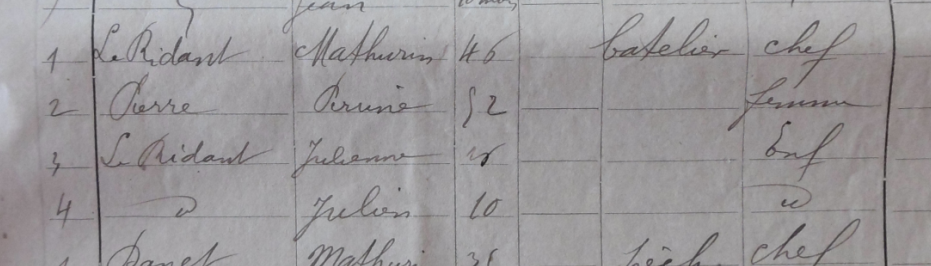 Jean
1 Le Ridant Mathurin 46 batelier chef
2 Pierre Perrine 52 femme
3 Le Ridant Julienne Enf
4 d Julien 10 d
1 Danet Mathurin chef